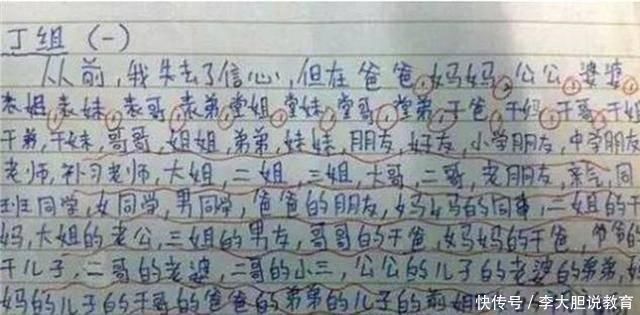 丁组 (一)
从前,我失去了信心,但在爸爸,妈妈,公公,婆婆
表姐,表妹,表哥,表弟,堂姐,堂妹,堂哥,堂弟,干爸,干妈,干哥,干姐
干弟,干妹,哥哥,姐姐,弟弟,妹妹,朋友,好友,小学朋友,中学朋友
老师,补习老师,大姐,二姐,三姐,大哥,二哥,老朋友,亲戚,同
班同学,女同学,男同学,爸爸的朋友,妈妈的同事,二姐的干
妈,大姐的老公,三姐的男友,哥哥的干爸,妈妈的干爸,爷爷的
干儿子,二哥的老婆,二哥的小三,公公的儿子的老婆的弟弟,
妈的儿子的干哥的爸爸的弟弟的儿子的前姐
快传号/李大胆说教育